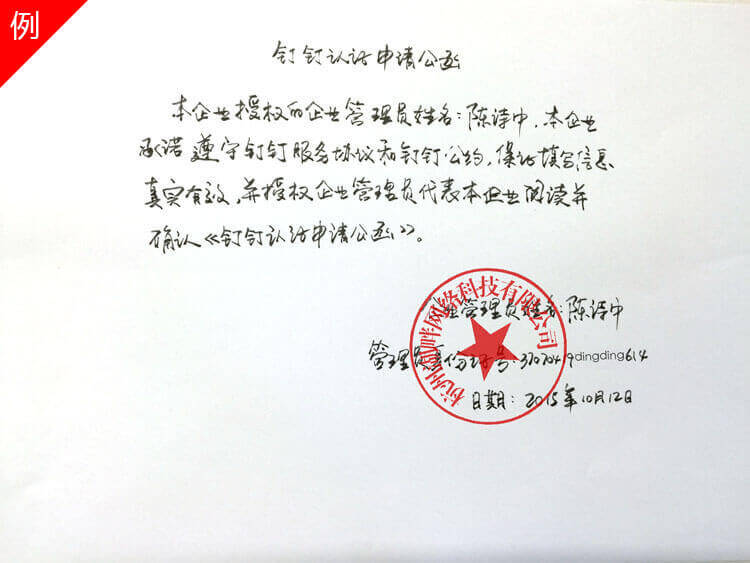 例
钉钉认证申请公函
本企业授权的企业管理员姓名:陈诗中,本企业
承诺遵守钉钉服务协议和钉钉公约,保证填写信息
真实有效,并授权企业管理员代表本企业阅读并
确认《钉钉认证申请公函》。
管理员姓名:陈诗中
管理员身份证号:3707049dingding614
日期:2015年10月12日
杭州畔网络科技有限公司